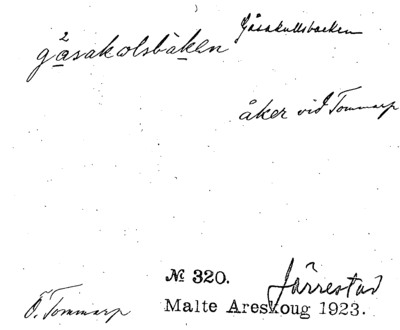 gåsakolsbäken
Gåsakullsbacken
åker vid Tommarp
№ 320.
Järrestad
Ö. Tommarp
Malte Areskoug 1923.